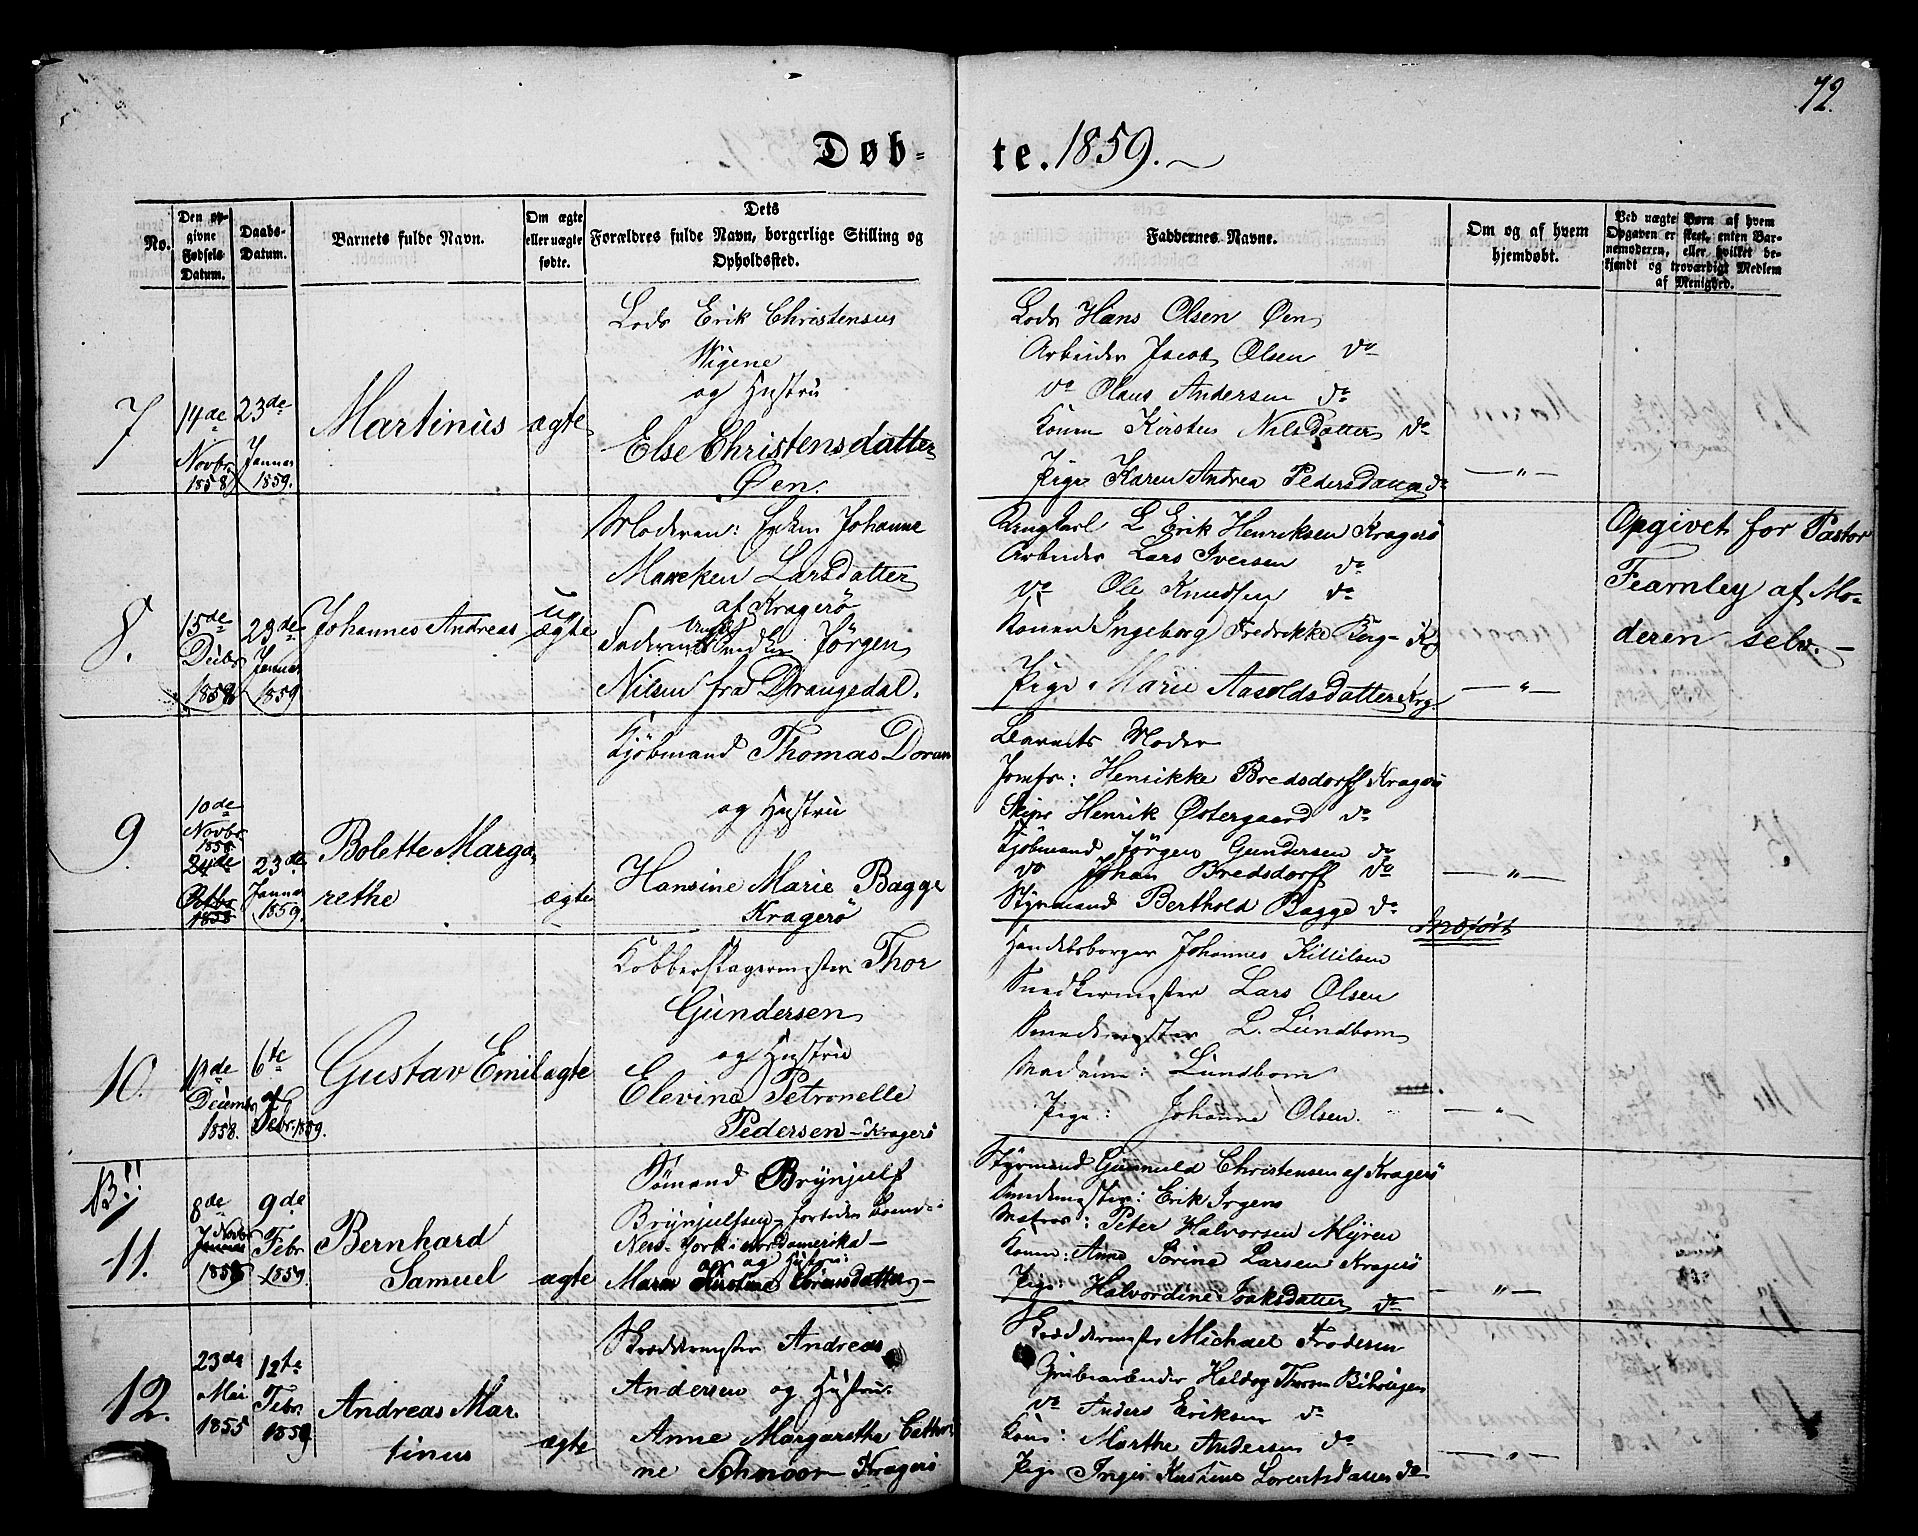 72.
Døb-
te. 1859.
No.
Den op-
givne
Fødsels-
Datum.
Daabs-
Datum.
Barnets fulde Navn.
Om ægte
eller uægte
fødte.
Dets
Forældres fulde Navn, borgerlige Stilling og
Opholdssted.
Faddernes Navne.
Om og af hvem
hjemdøbt.
Ved uægte Børn af hvem
Opgaven er skeet, enten Bar-
nemoderen, eller hvilket be-
kjendt og troværdigt Medlem
af Menighed.
7
14de
Novbr
1858
23de
Januar
1859.
Martinus
ægte
Lods Erik Christensen
Vigene
og Hustru
Else Christensdatter
Øen.
Lods Hans Olsen Øen
Arbeider Jacob Olsen do
do Olaus Andersen do
Konen Kirsten Nilsdatter do
Pige Karen Andrea Pedersdatter do
— " —
8.
15de
Decbr
1858
23de
Januar
1859
Johannes Andreas
uægte
Moderen: Johanne
Mareken Larsdatter
af Kragerø
Faderen Jørgen
Nilsen fra Drangedal.
Ungkarl L Erik Henriksen Kragerø
Arbeider Lars Iversen do
do Ole Knudsen do
Konen Ingeborg Fredrikke Berg - Kr
Pige Marie Aasoldsdatter Krg.
— " —
Opgivet for Pastor
Fearnley af Mo-
deren selv. —
9.
10de
Novbr
1858
24de
Octbr
1858
23de
Januar
1859.
Bolette Marga-
rethe
ægte
Kjøbmand Thomas Doran
og Hustru
Hansine Marie Bagge
Kragerø
Barnets Moder
Jomfr: Henrikke Bredsdorff Kragerø
Skipr Henrik Østergaard do
Kjøbmand Jørgen Gundersen do
do Johan Bredsdorff do
Styrmand Berthold Bagge do
— " —
Indført
10.
12de
Decembr
1858.
6te
af
Febr. 1859.
Gustav Emil
ægte
Kobberslagermester Thor
Gundersen
og Hustru
Elevine Petronelle
Pedersen - Kragerø
Handelsborger Johannes Killilsen
Snedkermester Lars Olsen
Smedemester L. Lundbom
Madam: Lundbom
Pige: Johanne Olsen.
— " —
11.
8de
Novbr
1858
9de
Febr
1859.
Bernhard
Samuel
ægte
Sømand Brynjulf
Brynjulfsen - fortiden
New-York i Nordamerika —
og Hustru:
Maren Kirstine Sørensdatter —
Styrmand Gunnuld Christensen af Kragerø
Smedemester: Erik Irgens
Matros: Peter Halvorsen Myren
Konen: Anne Sorine Larsen Kragerø
Pige Halvordine Isaksdatter do
— " —
12.
23de
Mai
1855
12te
Febr
1859
Andreas Mar-
tinus
ægte
Skreddermester Andreas
Andersen og Hustru
Anne Margarethe Cathri-
ne Schnoor Kragerø
Skreddermester Michael Frodesen
Grubearbeider Haldog Thorsen
do Anders Eriksen do
Kone: Marthe Andersen do
Pige Inger Kirstine Lorentsdatter do
— " —